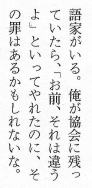 語家がいる。俺が協会に残っ
ていたら、「お前、それは違う
よ」といってやれたのに、そ
の罪はあるかもしれないな。